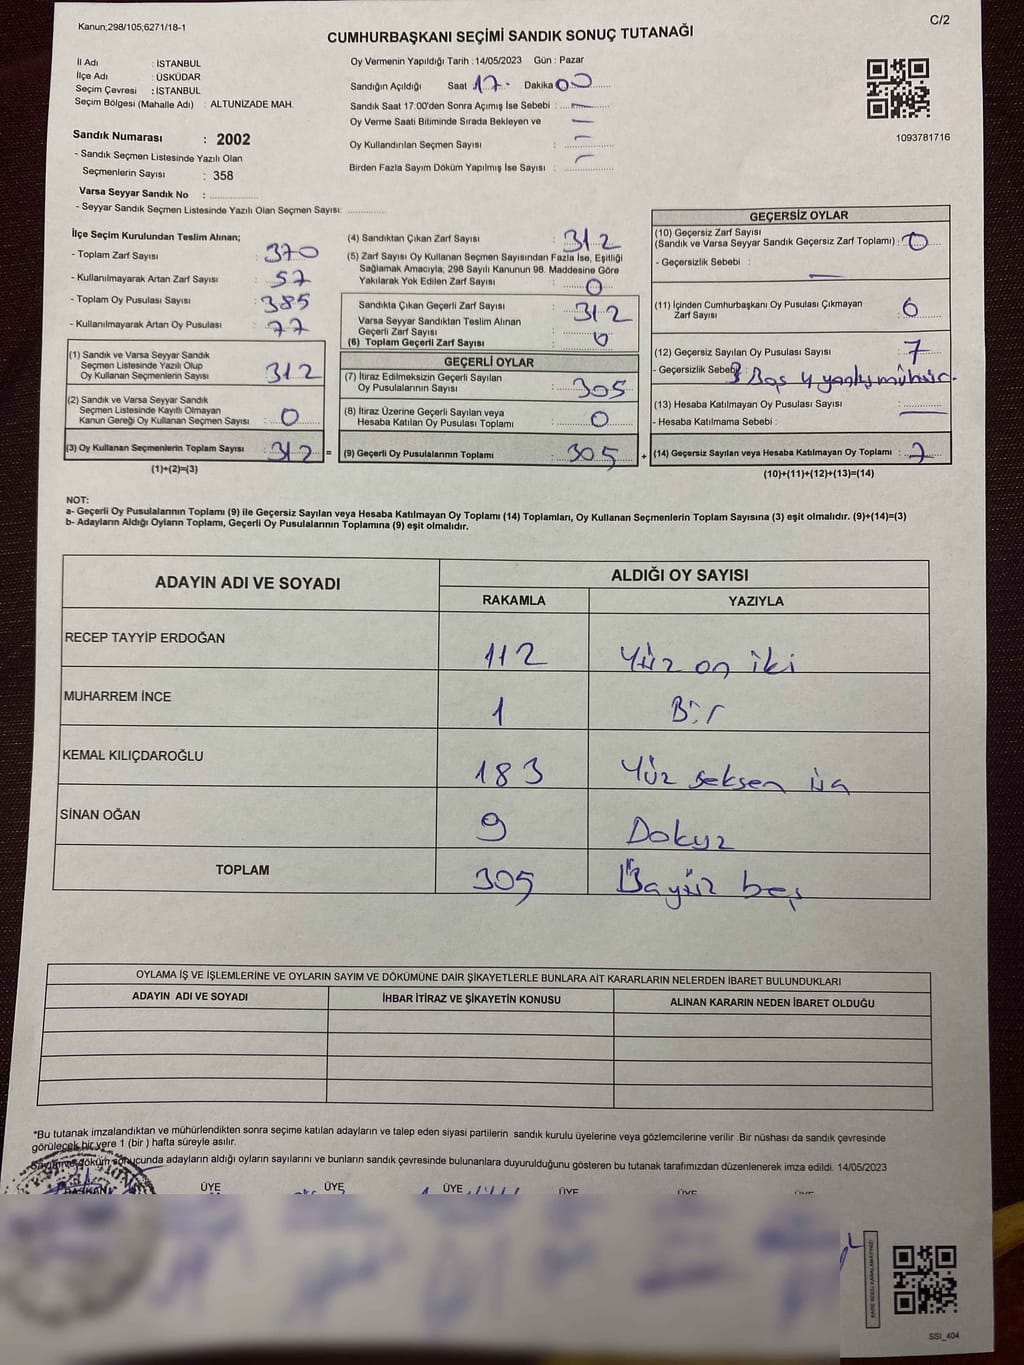 Kanun;298/105,6271/18-1
C/2
CUMHURBAŞKANI SEÇİMİ SANDIK SONUÇ TUTANAĞI
İl Adı : İSTANBUL
İlçe Adı : ÜSKÜDAR
Seçim Çevresi : İSTANBUL
Seçim Bölgesi (Mahalle Adı) : ALTUNİZADE MAH.
Sandık Numarası : 2002
- Sandık Seçmen Listesinde Yazılı Olan
Seçmenlerin Sayısı : 358
Varsa Seyyar Sandık No :
- Seyyar Sandık Seçmen Listesinde Yazılı Olan Seçmen Sayısı:
Oy Vermenin Yapıldığı Tarih : 14/05/2023 Gün : Pazar
Sandığın Açıldığı Saat 17 Dakika 00
Sandık Saat 17:00'den Sonra Açımış İse Sebebi : —
Oy Verme Saati Bitiminde Sırada Bekleyen ve —
Oy Kullandırılan Seçmen Sayısı : —
Birden Fazla Sayım Döküm Yapılmış İse Sayısı : —
1093781716
İlçe Seçim Kurulundan Teslim Alınan;
- Toplam Zarf Sayısı : 370
- Kullanılmayarak Artan Zarf Sayısı : 57
- Toplam Oy Pusulası Sayısı : 385
- Kullanılmayarak Artan Oy Pusulası : 77
(1) Sandık ve Varsa Seyyar Sandık
Seçmen Listesinde Yazılı Olup
Oy Kullanan Seçmenlerin Sayısı : 312
(2) Sandık ve Varsa Seyyar Sandık
Seçmen Listesinde Kayıtlı Olmayan
Kanun Gereği Oy Kullanan Seçmen Sayısı : 0
(3) Oy Kullanan Seçmenlerin Toplam Sayısı : 312 =
(1)+(2)=(3)
(4) Sandıktan Çıkan Zarf Sayısı : 312
(5) Zarf Sayısı Oy Kullanan Seçmen Sayısından Fazla İse, Eşitliği
Sağlamak Amacıyla; 298 Sayılı Kanunun 98. Maddesine Göre
Yakılarak Yok Edilen Zarf Sayısı : 0
Sandıkta Çıkan Geçerli Zarf Sayısı : 312
Varsa Seyyar Sandıktan Teslim Alınan
Geçerli Zarf Sayısı
(6) Toplam Geçerli Zarf Sayısı
GEÇERLİ OYLAR
(7) İtiraz Edilmeksizin Geçerli Sayılan
Oy Pusulalarının Sayısı : 305
(8) İtiraz Üzerine Geçerli Sayılan veya
Hesaba Katılan Oy Pusulası Toplamı : 0
(9) Geçerli Oy Pusulalarının Toplamı : 305 +
GEÇERSİZ OYLAR
(10) Geçersiz Zarf Sayısı
(Sandık ve Varsa Seyyar Sandık Geçersiz Zarf Toplamı) : 0
- Geçersizlik Sebebi : —
(11) İçinden Cumhurbaşkanı Oy Pusulası Çıkmayan
Zarf Sayısı :
(12) Geçersiz Sayılan Oy Pusulası Sayısı : 7
- Geçersizlik Sebebi : 3 Boş 4 yanlış mühür.
(13) Hesaba Katılmayan Oy Pusulası Sayısı : —
- Hesaba Katılmama Sebebi :
(14) Geçersiz Sayılan veya Hesaba Katılmayan Oy Toplamı : 7
(10)+(11)+(12)+(13)=(14)
NOT:
a- Geçerli Oy Pusulalarının Toplamı (9) ile Geçersiz Sayılan veya Hesaba Katılmayan Oy Toplamı (14) Toplamları, Oy Kullanan Seçmenlerin Toplam Sayısına (3) eşit olmalıdır. (9)+(14)=(3)
b- Adayların Aldığı Oyların Toplamı, Geçerli Oy Pusulalarının Toplamına (9) eşit olmalıdır.
ADAYIN ADI VE SOYADI ALDIĞI OY SAYISI
RAKAMLA YAZIYLA
RECEP TAYYİP ERDOĞAN 112 Yüz on iki
MUHARREM İNCE 1 Bir
KEMAL KILIÇDAROĞLU 183 Yüz seksen üç
SİNAN OĞAN 9 Dokuz
TOPLAM 305 Üçyüz beş
OYLAMA İŞ VE İŞLEMLERİNE VE OYLARIN SAYIM VE DÖKÜMÜNE DAİR ŞİKAYETLERLE BUNLARA AİT KARARLARIN NELERDEN İBARET BULUNDUKLARI
ADAYIN ADI VE SOYADI İHBAR İTİRAZ VE ŞİKAYETİN KONUSU ALINAN KARARIN NEDEN İBARET OLDUĞU
*Bu tutanak imzalandıktan ve mühürlendikten sonra seçime katılan adayların ve talep eden siyasi partilerin sandık kurulu üyelerine veya gözlemcilerine verilir .Bir nüshası da sandık çevresinde
görülecek bir yere 1 (bir ) hafta süreyle asılır.
Sayım ve döküm sonucunda adayların aldığı oyların sayılarını ve bunların sandık çevresinde bulunanlara duyurulduğunu gösteren bu tutanak tarafımızdan düzenlenerek imza edildi. 14/05/2023
BAŞKAN ÜYE ÜYE ÜYE ÜYE ÜYE ÜYE
SSI_404